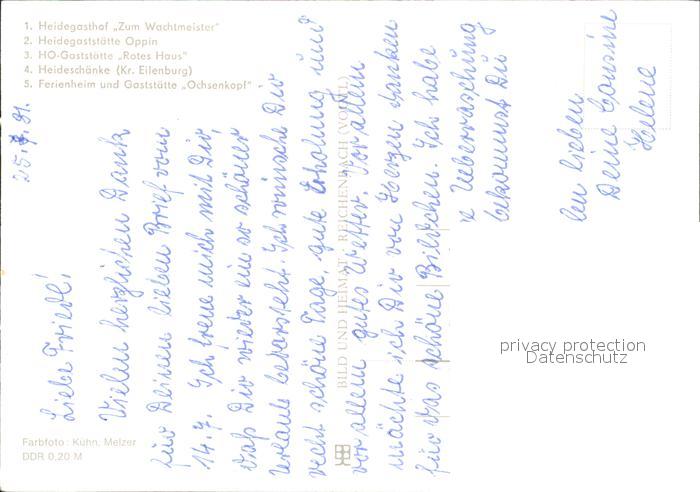 1. Heidegasthof „Zum Wachtmeister"
2. Heidegaststätte Oppin
3. HO-Gaststätte „Rotes Haus"
4. Heideschänke (Kr. Eilenburg)
5. Ferienheim und Gaststätte „Ochsenkopf"
25.7.81.
Liebe Friedl!
Vielen herzlichen Dank
für Deinen lieben Brief vom
14.7. Ich freue mich mit Dir,
daß Dir wieder ein so schöner
Urlaub bevorsteht. Ich wünsche Dir
recht schöne Tage, gute Erholung und
vor allem gutes Wetter. Vor allem
möchte ich Dir von Herzen danken
für das schöne Bildchen. Ich habe
e Ueberraschung
bekommst Du
len lieben
Deine Cousine
Helene
BILD UND HEIMAT REICHENBACH (VOGTL)
Farbfoto: Kühn, Melzer
DDR 0,20 M
privacy protection
Datenschutz